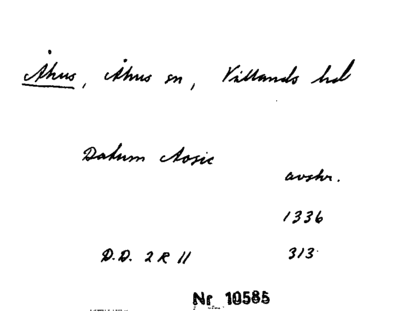 Åhus, Åhus sn, Villands hd
Datum Aosie
avskr.
1336
D.D. 2 R 11
313
Nr 10585